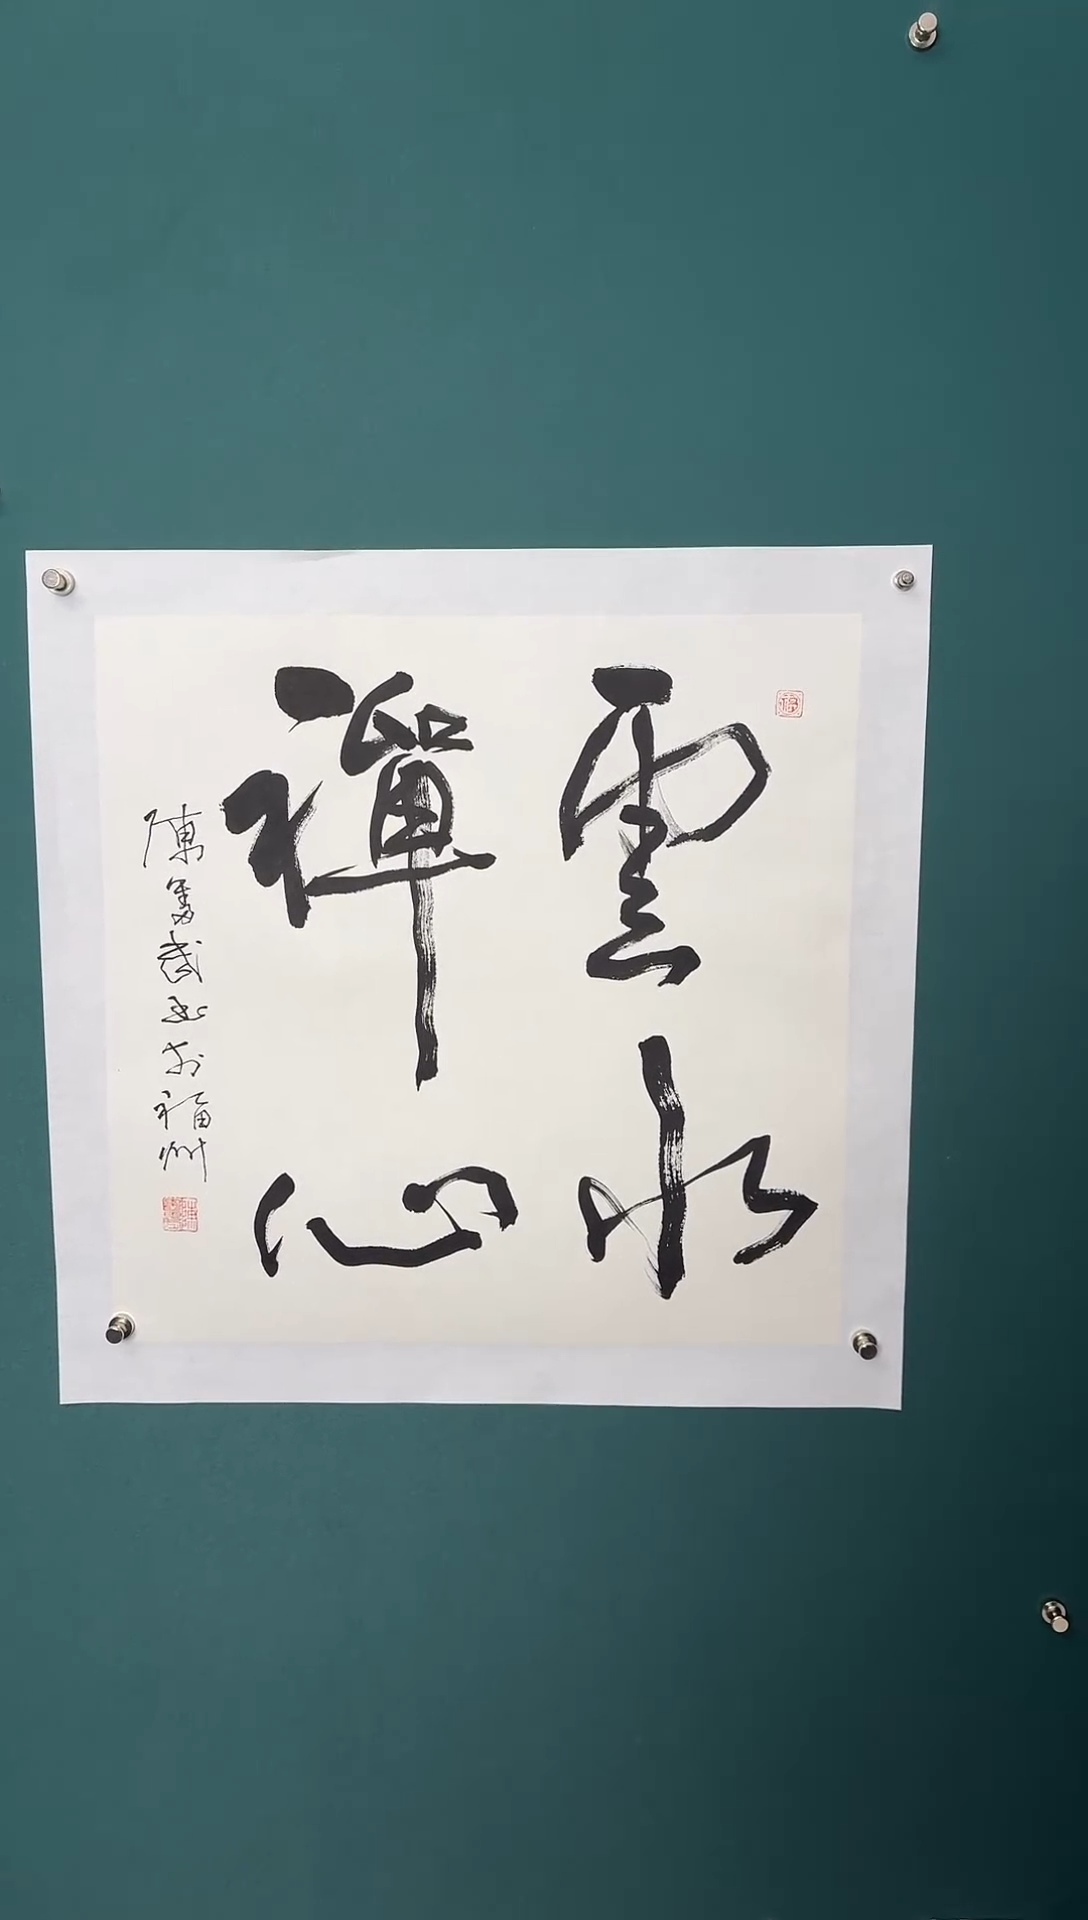 雲水
禪心
陳 於福州